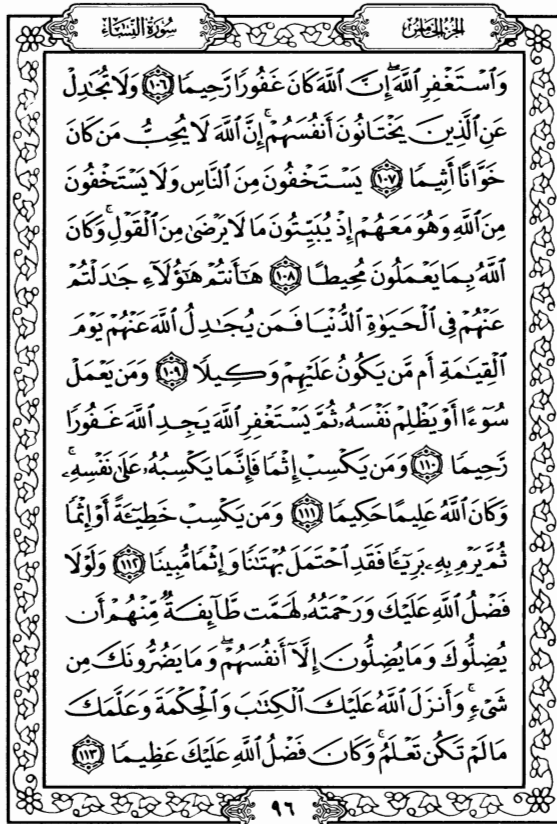 الجزء الخامس
سورة النساء
وَٱسْتَغْفِرِ ٱللَّهَ ۖ إِنَّ ٱللَّهَ كَانَ غَفُورًا رَّحِيمًا ۝١٠٦ وَلَا تُجَٰدِلْ
عَنِ ٱلَّذِينَ يَخْتَانُونَ أَنفُسَهُمْ ۚ إِنَّ ٱللَّهَ لَا يُحِبُّ مَن كَانَ
خَوَّانًا أَثِيمًا ۝١٠٧ يَسْتَخْفُونَ مِنَ ٱلنَّاسِ وَلَا يَسْتَخْفُونَ
مِنَ ٱللَّهِ وَهُوَ مَعَهُمْ إِذْ يُبَيِّتُونَ مَا لَا يَرْضَىٰ مِنَ ٱلْقَوْلِ ۚ وَكَانَ
ٱللَّهُ بِمَا يَعْمَلُونَ مُحِيطًا ۝١٠٨ هَٰٓأَنتُمْ هَٰٓؤُلَآءِ جَٰدَلْتُمْ
عَنْهُمْ فِى ٱلْحَيَوٰةِ ٱلدُّنْيَا فَمَن يُجَٰدِلُ ٱللَّهَ عَنْهُمْ يَوْمَ
ٱلْقِيَٰمَةِ أَم مَّن يَكُونُ عَلَيْهِمْ وَكِيلًا ۝١٠٩ وَمَن يَعْمَلْ
سُوٓءًا أَوْ يَظْلِمْ نَفْسَهُۥ ثُمَّ يَسْتَغْفِرِ ٱللَّهَ يَجِدِ ٱللَّهَ غَفُورًا
رَّحِيمًا ۝١١٠ وَمَن يَكْسِبْ إِثْمًا فَإِنَّمَا يَكْسِبُهُۥ عَلَىٰ نَفْسِهِۦ ۚ
وَكَانَ ٱللَّهُ عَلِيمًا حَكِيمًا ۝١١١ وَمَن يَكْسِبْ خَطِيٓـَٔةً أَوْ إِثْمًا
ثُمَّ يَرْمِ بِهِۦ بَرِيٓـًٔا فَقَدِ ٱحْتَمَلَ بُهْتَٰنًا وَإِثْمًا مُّبِينًا ۝١١٢ وَلَوْلَا
فَضْلُ ٱللَّهِ عَلَيْكَ وَرَحْمَتُهُۥ لَهَمَّت طَّآئِفَةٌ مِّنْهُمْ أَن
يُضِلُّوكَ وَمَا يُضِلُّونَ إِلَّآ أَنفُسَهُمْ ۖ وَمَا يَضُرُّونَكَ مِن
شَىْءٍ ۚ وَأَنزَلَ ٱللَّهُ عَلَيْكَ ٱلْكِتَٰبَ وَٱلْحِكْمَةَ وَعَلَّمَكَ
مَا لَمْ تَكُن تَعْلَمُ ۚ وَكَانَ فَضْلُ ٱللَّهِ عَلَيْكَ عَظِيمًا ۝١١٣
٩٦